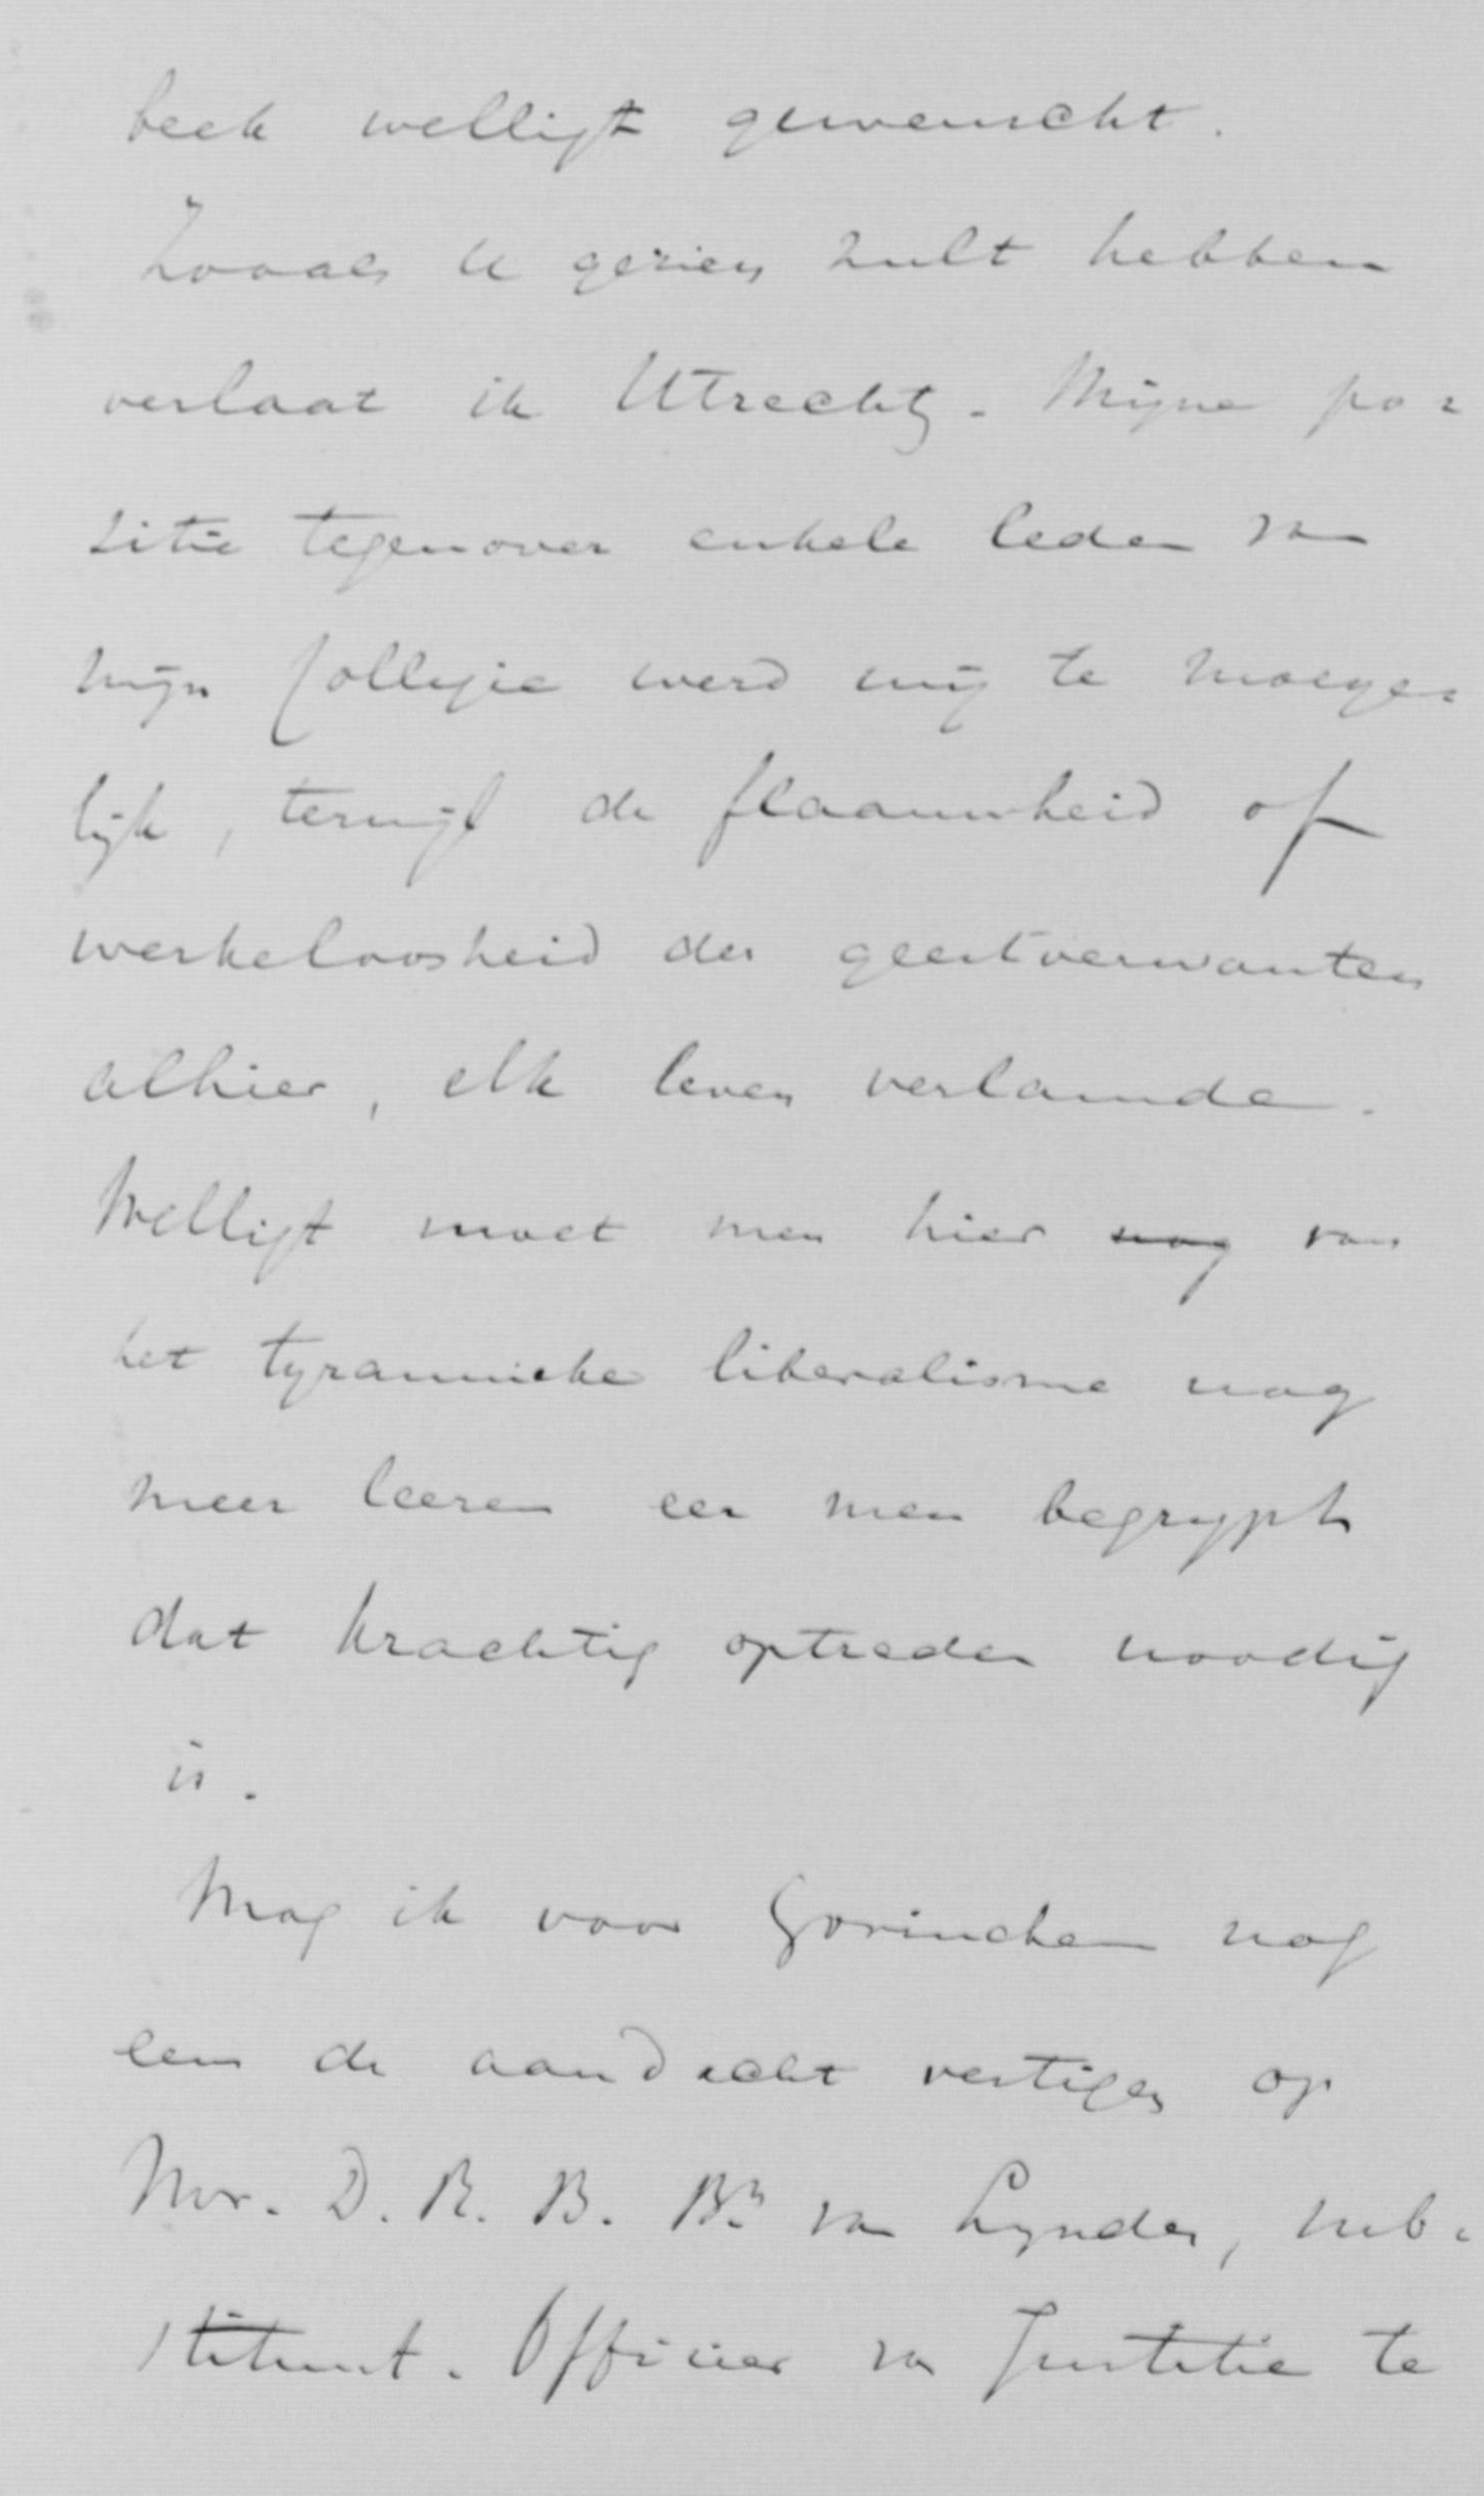 beek welligt gewenscht.
Zooals U gezien zult hebben
verlaat ik Utrecht. Mijne po=
sitie tegenover enkele leden van
mijn Collegie werd mij te moeye=
lijk, terwijl de flaauwheid of
werkeloosheid der geestverwanten
alhier, elk leven verlamde.
Welligt moet men hier nog van
het tyrannieke liberalisme nog
meer leeren eer men begrypt
dat krachtig optreden noodig
is.
Mag ik voor Gorinchem nog
eens de aandacht vestigen op
Mr. D. R. B. Bn van Lynden, sub=
stituut. Officier van Justitie te